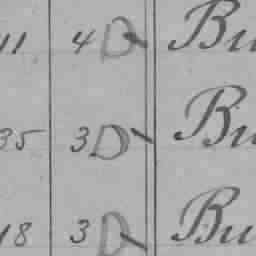 11 4 D Bu
35 3 D Bu
18 3 D Bu